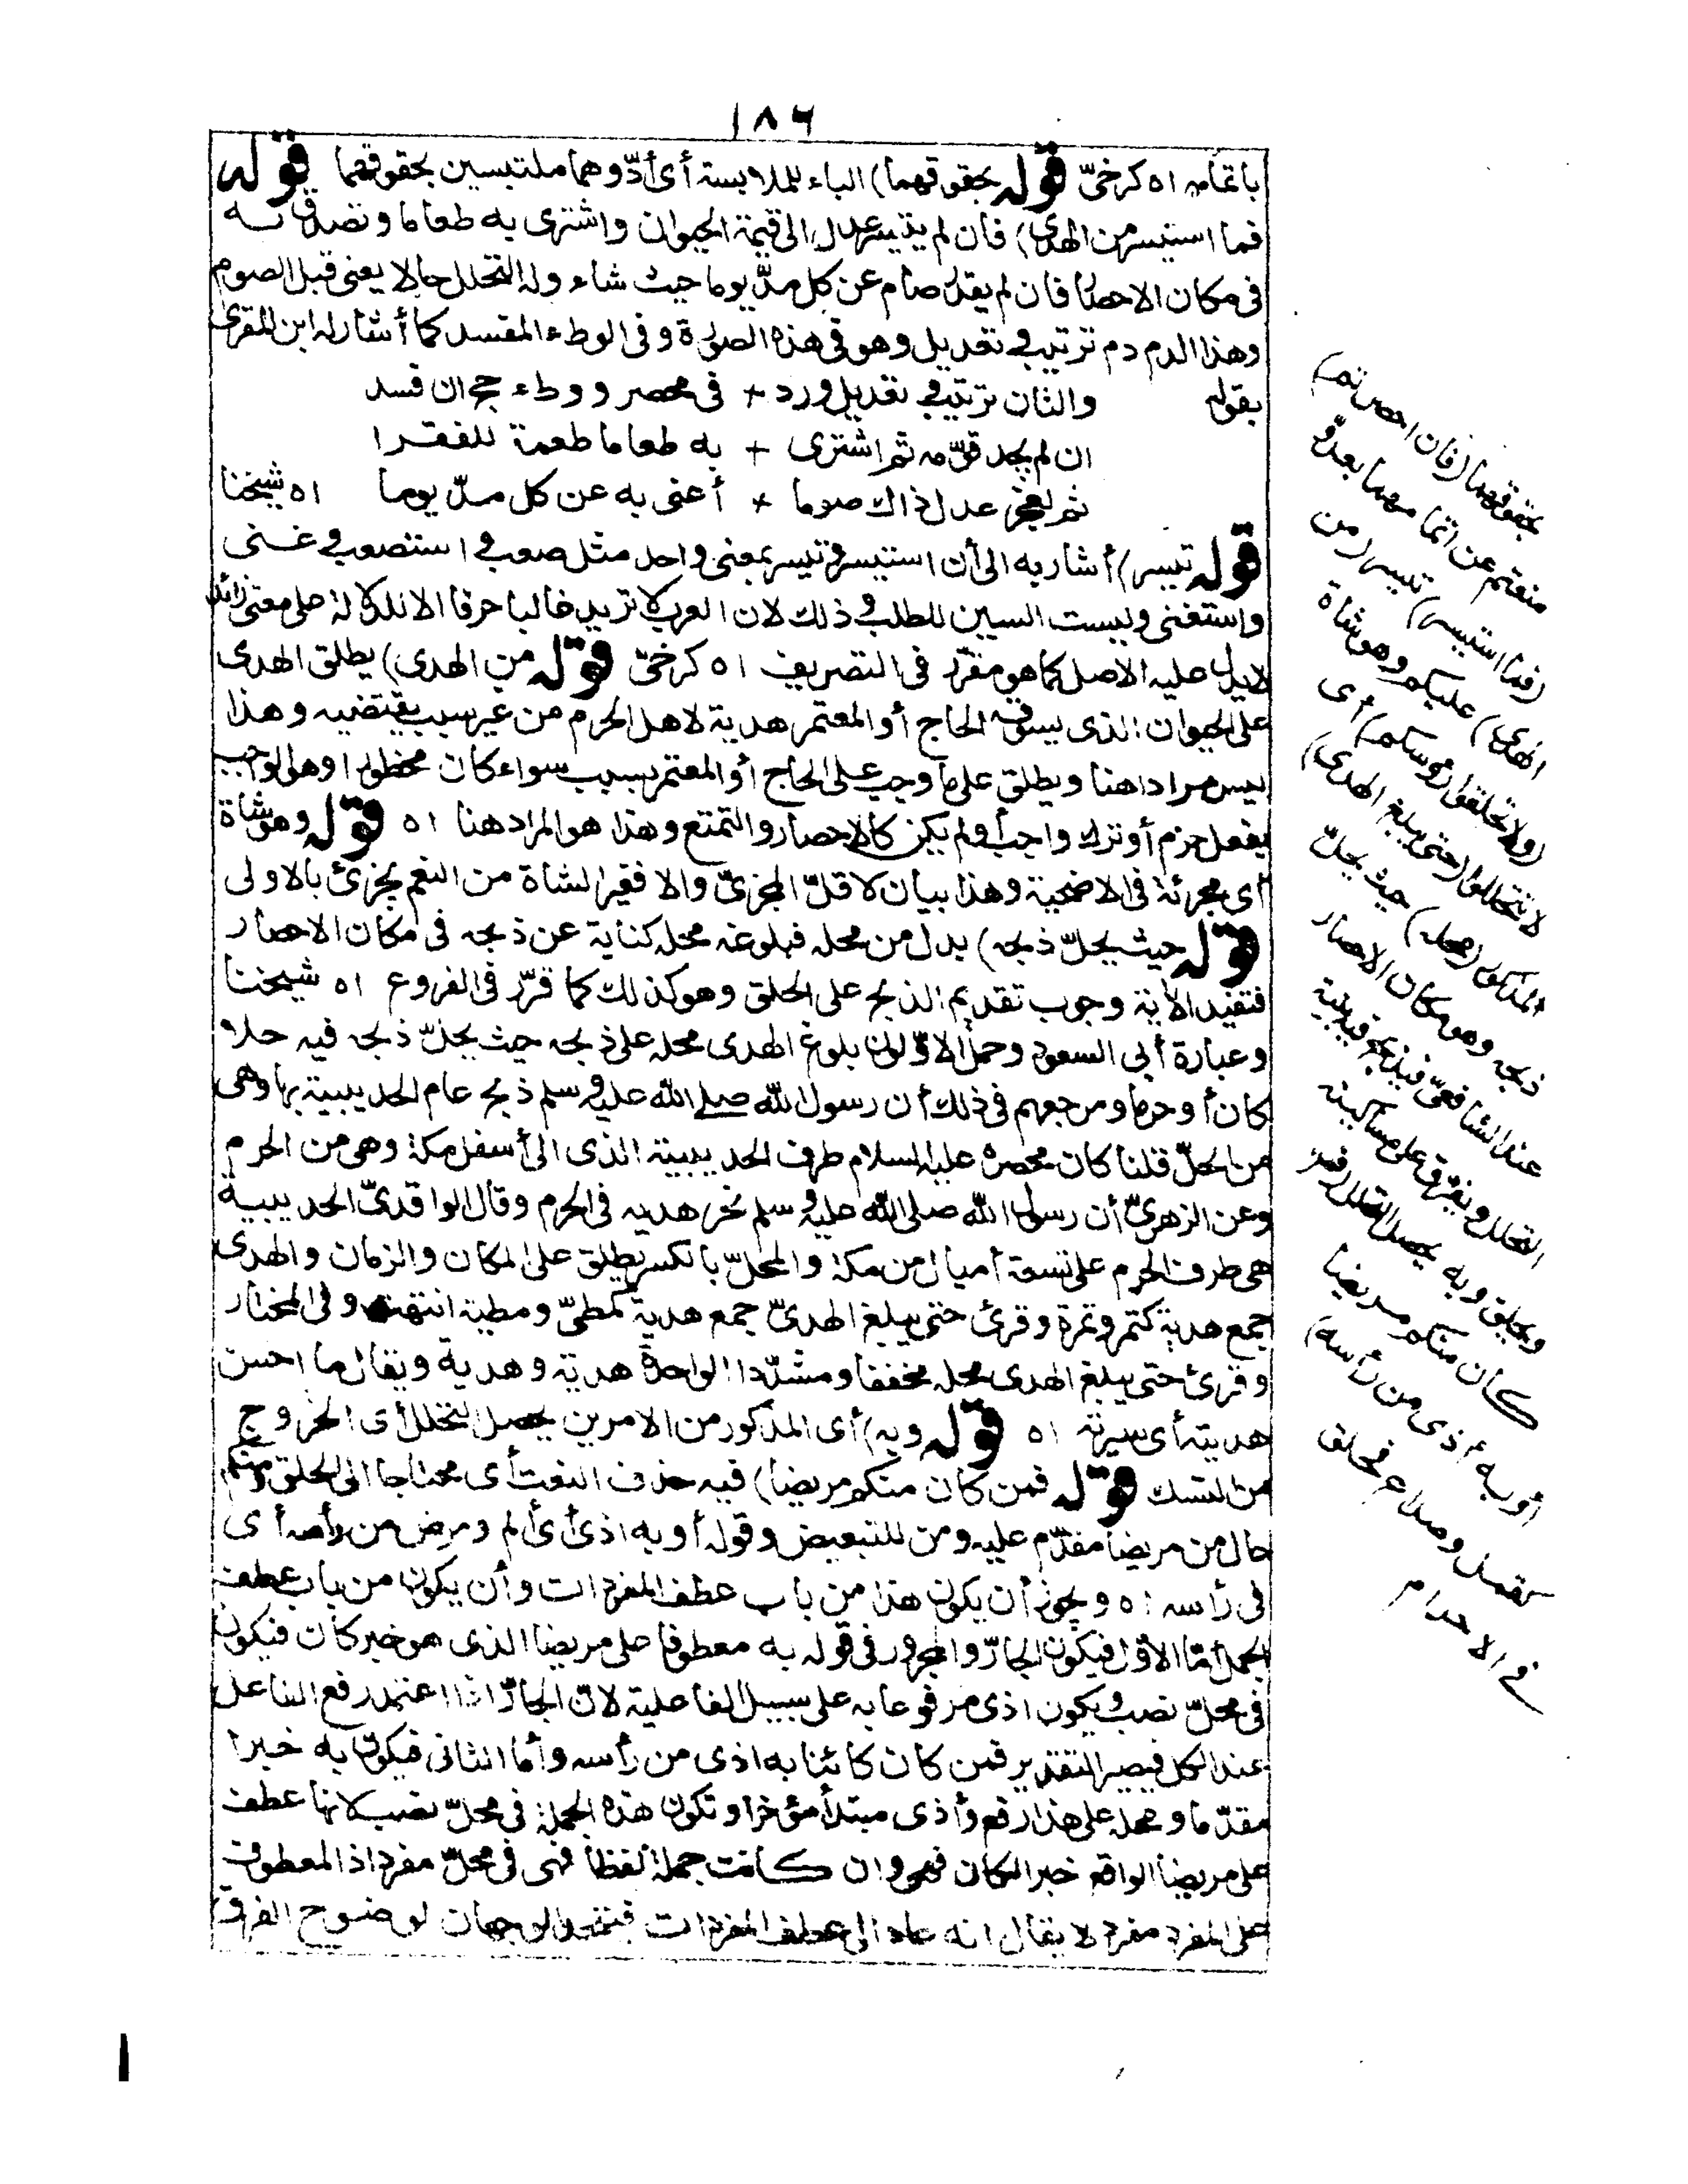 ١٨٦
باتمامه اه كرخىّ قوله بحقوقهما) الباء للملابسة أى أدّوهما ملتبسين بحقوقهما قوله
فما استيسر من الهدى) فان لم يتيسر عدل الى قيمة الحيوان واشترى به طعاما وتصدق به
فى مكان الاحصار فان لم يقدر صام عن كل مدّ يوما حيث شاء وله التحلل حالا يعنى قبل الصوم
وهذا الدم دم ترتيب وتعديل وهو فى هذه الصورة وفى الوطء المفسد كما أشار له ابن المقرى
بقوله والثان ترتيب وتعديل ورد + فى محصر ووطء حج ان فسد
ان لم يجد قوّمه ثم اشترى + به طعاما طعمة للفقرا
ثم لعجز عدل ذاك صوما + أعنى به عن كل مدّ يوما اه شيخنا
قوله تيسر) أشار به الى أن استيسر وتيسر بمعنى واحد مثل صعب واستصعب وغنى
واستغنى وليست السين للطلب وذلك لان العرب لا تزيد غالبا حرفا الا للدلالة على معنى زائد
لا يدل عليه الاصل كما هو مقرّر فى التصريف اه كرخىّ قوله من الهدى) يطلق الهدى
على الحيوان الذى يسوقه الحاج أو المعتمر هدية لاهل الحرم من غير سبب يقتضيه وهذا
ليس مرادا هنا ويطلق على ما وجب على الحاج أو المعتمر بسبب سواء كان محظورا وهو الواجب
بفعل حرم أو ترك واجب أو لم يكن كالاحصار والتمتع وهذا هو المراد هنا اه قوله وهو شاة
أى مجزئة فى الاضحية وهذا بيان لاقلّ المجزئ والا فغير الشاة من النعم يجزئ بالاولى
قوله حيث يحلّ ذبحه) بدل من محله فبلوغه محله كناية عن ذبحه فى مكان الاحصار
فتفيد الآية وجوب تقديم الذبح على الحلق وهو كذلك كما قرّر فى الفروع اه شيخنا
وعبارة أبى السعود وحمل الاوّلون بلوغ الهدى محله على ذبحه حيث يحلّ ذبحه فيه حلا
كان أو حرما ومرجعهم فى ذلك أن رسول الله صلى الله عليه وسلم ذبح عام الحديبية بها وهى
من الحلّ قلنا كان محصره عليه السلام طرف الحديبية الذى الى أسفل مكة وهى من الحرم
وعن الزهرىّ أن رسول الله صلى الله عليه وسلم نحر هديه فى الحرم وقال الواقدىّ الحديبية
هى طرف الحرم على تسعة أميال من مكة والمحلّ بالكسر يطلق على المكان والزمان والهدى
جمع هدية كتمر وتمرة وقرئ حتى يبلغ الهدىّ جمع هدية كمطىّ ومطية انتهت وفى المختار
وقرئ حتى يبلغ الهدى محله مخففا ومشدّدا الواحدة هدية وهدية ويقال ما احسن
هديته أى سيرته اه قوله وبه) أى المذكور من الامرين يحصل التحلل أى الخروج
من النسك قوله فمن كان منكم مريضا) فيه حذف النعت أى محتاجا الى الحلق ومنكم
حال من مريضا مقدّم عليه ومن للتبعيض وقوله أو به اذى أى ألم ومرض من رأسه أى
فى رأسه اه ويجوز أن يكون هذا من باب عطف المفردات وأن يكون من باب عطف
الجمل أمّا الاوّل فيكون الجارّ والمجرور فى قوله به معطوفا على مريضا الذى هو خبر كان فيكون
فى محلّ نصب ويكون اذى مرفوعا به على سبيل الفاعلية لانّ الجارّ اذا اعتمد رفع الفاعل
عند الكل فيصير التقدير فمن كان كائنا به اذى من رأسه وأما الثانى فيكون به خبرا
مقدّما ومحله على هذا رفع وأذى مبتدأ مؤخرا وتكون هذه الجملة فى محلّ نصب لانها عطف
على مريضا الواقع خبرا لكان فهى وان كانت جملة لفظا فهى فى محلّ مفرد اذ المعطوف
على المفرد مفرد لا يقال انه عاد الى عطف المفردات فيتحد الوجهان لوضوح الفرق
بحقوقهما (فان احصرتم)
منعتم عن اتمامهما بعدوّ
(فما استيسر) تيسر (من
الهدى) عليكم وهو شاة
(ولا تحلقوا رؤسكم) أى
لا تتحللوا (حتى يبلغ الهدى)
المذكور (محله) حيث يحلّ
ذبحه وهو مكان الاحصار
عند الشافعىّ فيذبح فيه بنية
التحلل ويفرّق على مساكينه
ويحلق وبه يحصل التحلل (فمن
كان منكم مريضا
أو به أذى من رأسه)
كقمل وصداع فحلق
فى الاحرام